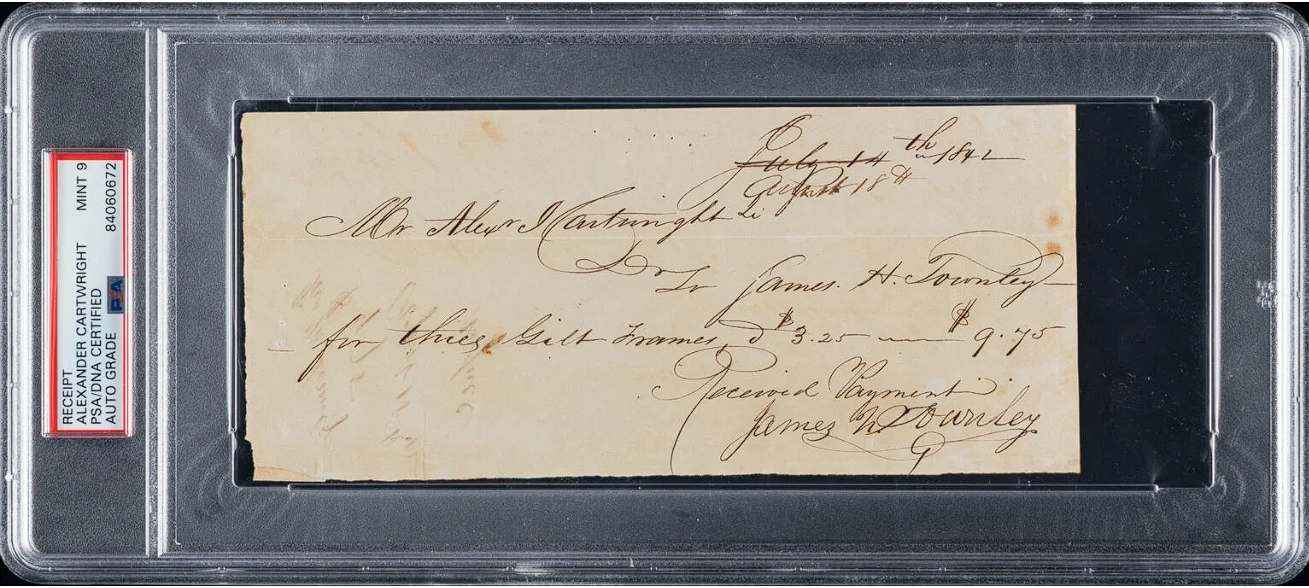 RECEIPT MINT 9
ALEXANDER CARTWRIGHT
PSA/DNA CERTIFIED
AUTO GRADE 84060672
PSA
July 14th 1842
August 18th
Mr Alexr J Cartwright
Dr To James H. Townley
for three Gilt Frames @ $3.25 — $9.75
Received Payment
James H Townley